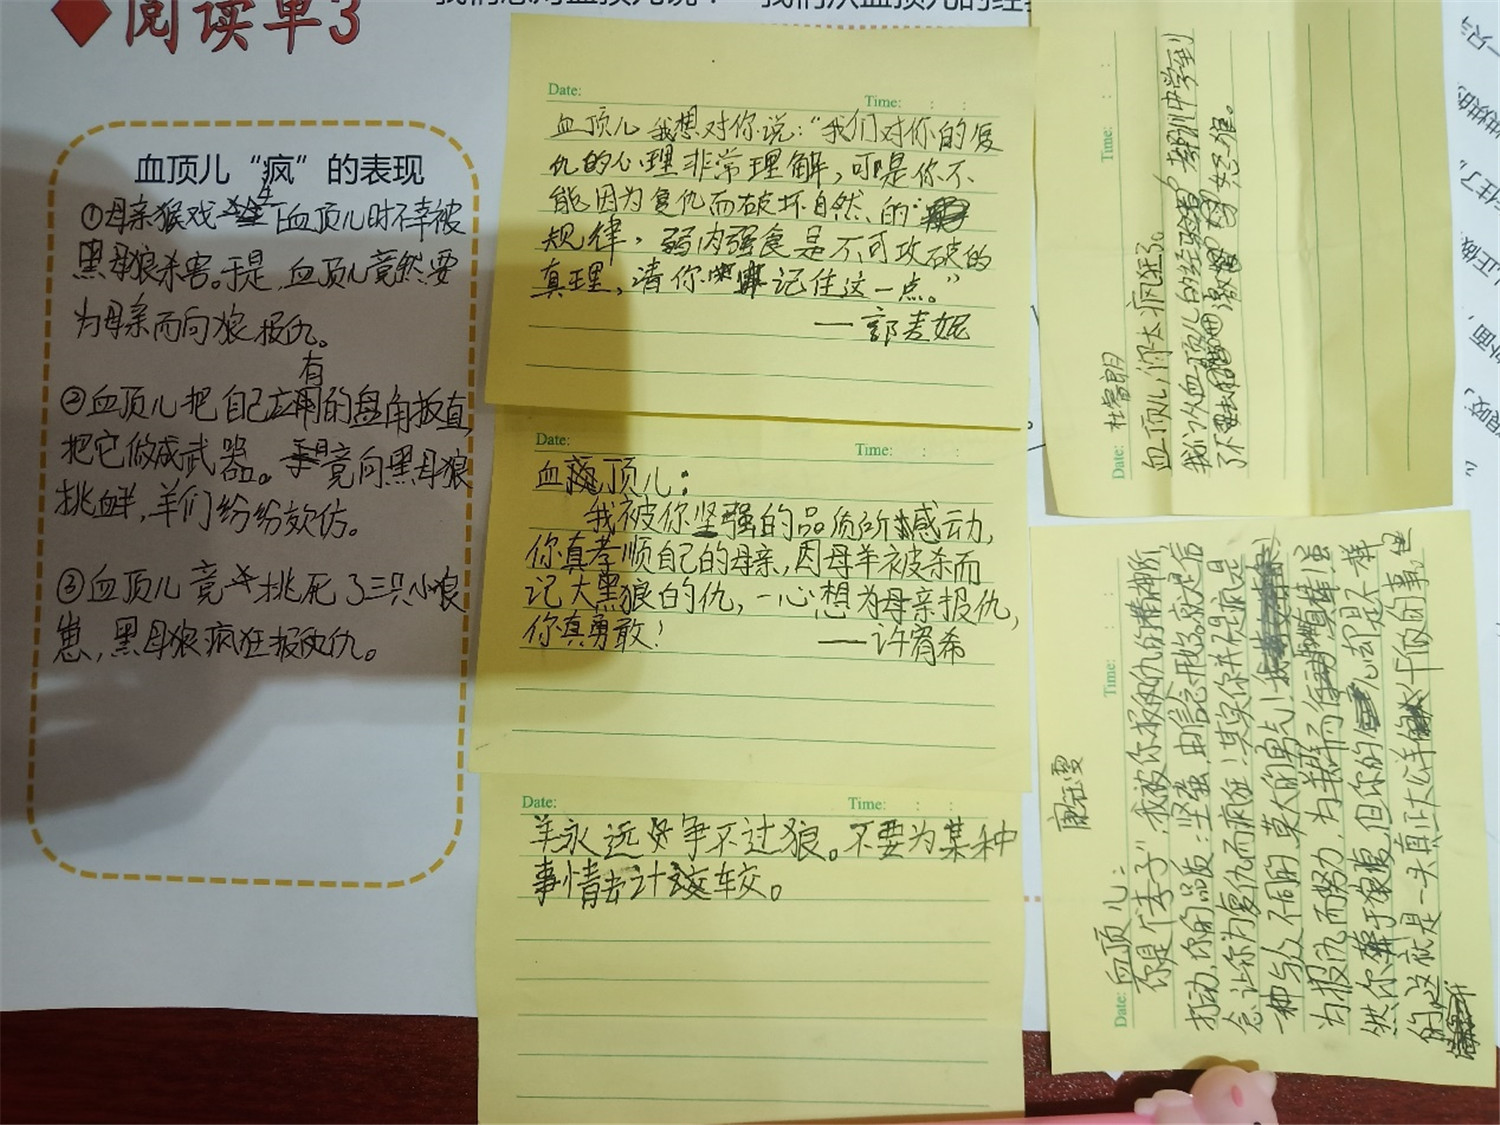 阅读单3
血顶儿“疯”的表现
①母亲猴戏 生下血顶儿时不幸被
黑母狼杀害。于是,血顶儿竟然要
为母亲而向狼报仇。
②血顶儿把自己应有的盘角扳直,
把它做成武器。竟向黑母狼
挑衅,羊们纷纷效仿。
③血顶儿竟挑死了三只小狼
崽,黑母狼疯狂报仇。
Date: Time: : :
血顶儿我想对你说:“我们对你的复
仇的心理非常理解,可是你不
能因为复仇而破坏自然的
规律,弱肉强食是不可攻破的
真理,请你记住这一点。”
——郭麦妮
Date: Time: : :
血顶儿:
我被你坚强的品质所感动,
你真孝顺自己的母亲,因母羊被杀而
记大黑狼的仇,一心想为母亲报仇,
你真勇敢!
——许宵希
Date: Time: : :
羊永远争不过狼。不要为某种
事情去计较。
Date: Time: : :
血顶儿你太疯狂了。
我们从血顶儿的经历中学到
了不要去激怒谁。
Date: Time: : :
血顶儿:
你是“孝子”,我被你报仇的精神所
打动,你的品质:坚强,由信念开始。就是信
念让你为复仇而疯狂!其实你并不是疯,是
一种与众不同的、莫大的勇气!
为报仇而努力,为羊群而行动,
然你葬于狼腹,但你的心却是不一样
的,这就是一头真正大公羊干的事